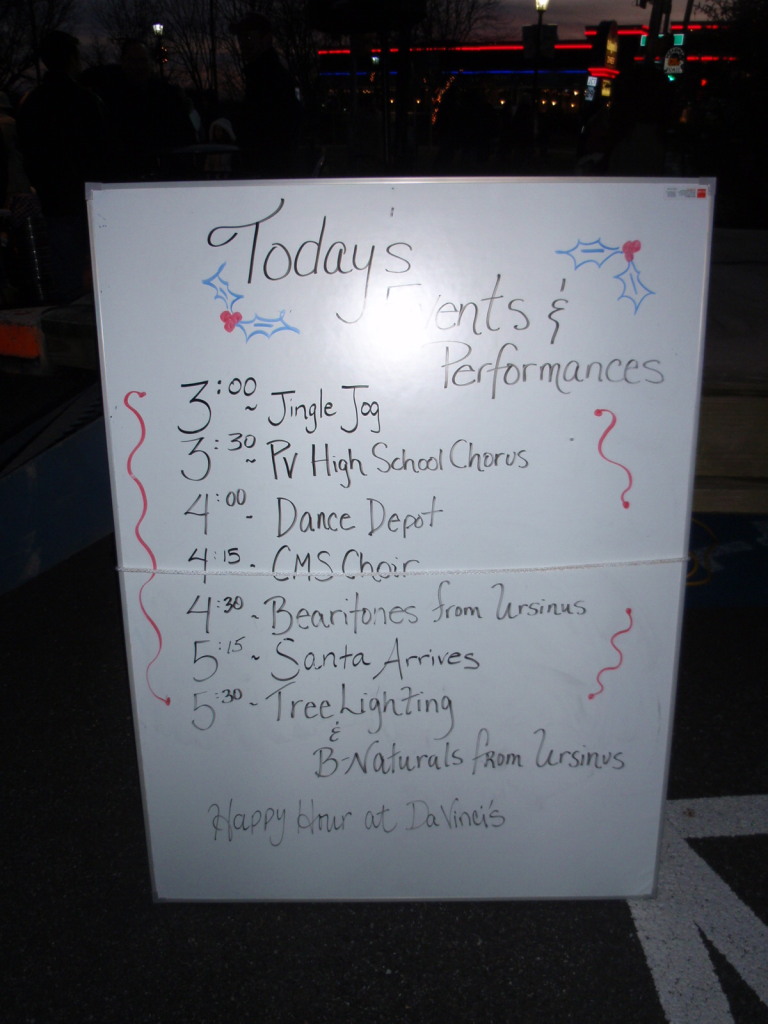 Todays
Events &
Performances
3:00 ~ Jingle Jog
3:30 ~ PV High School Chorus
4:00 - Dance Depot
4:15 - CMS Choir
4:30 ~ Bearitones from Ursinus
5:15 ~ Santa Arrives
5:30 - Tree Lighting
&
B-Naturals from Ursinus
Happy Hour at DaVinci's